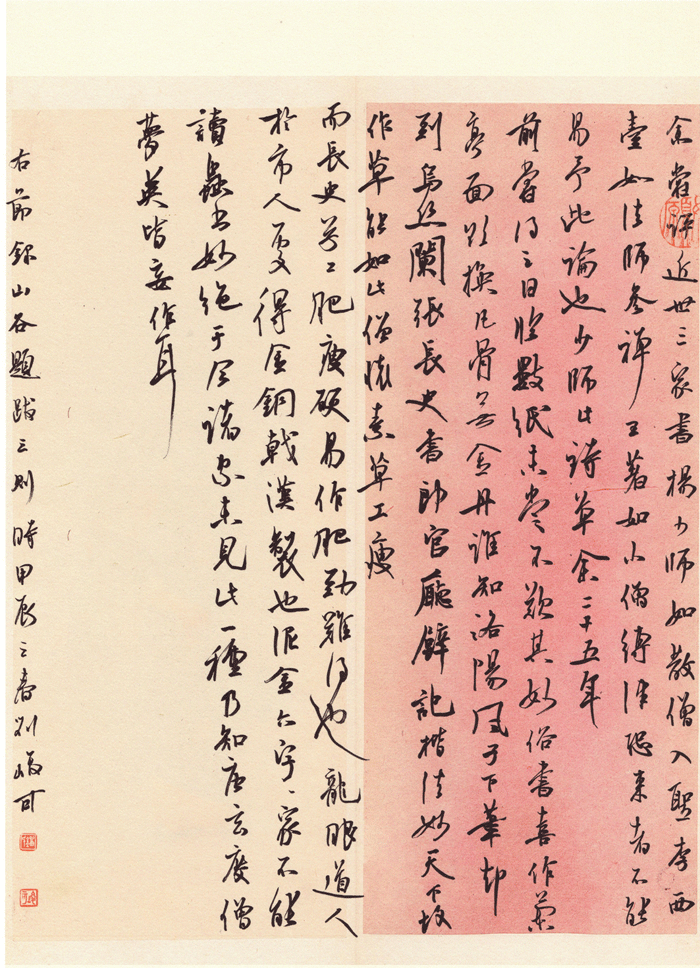 余嘗評近世三家書楊少師如散僧入聖李西
臺如法師參禪王著如小僧縛律恐來者不能
易予此論也少師此詩草余二十五年
前嘗得之日臨數紙未盡不歎其妙俗書喜作蘭
亭面欲換凡骨無金丹誰知洛陽風子下筆却
到烏絲闌張長史書郎官廳壁記楷法妙天下故
作草能如此僧懷素草工瘦
而長史草工肥瘦硬易作肥勁難得也龍眼道人
於市人處得金銅戟漢製也泥金六字字家不能
讀蟲書妙絕于今諸家未見此一種乃知唐玄度僧
夢英皆妄作耳
右節錄山谷題跋三則時甲辰之春劉